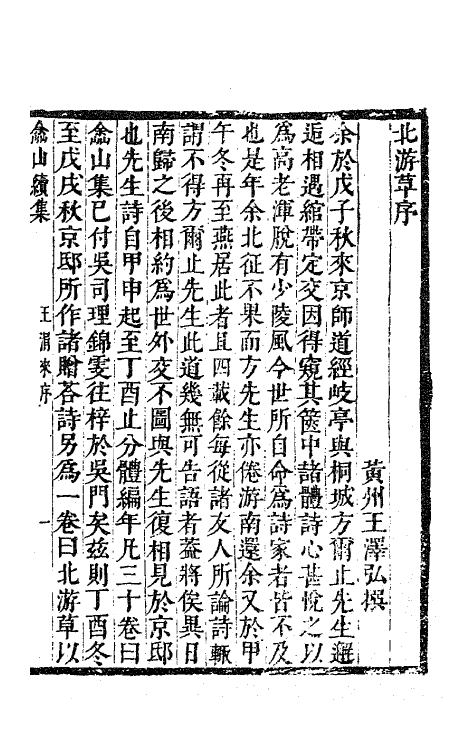 北游草序
黄州王澤弘撰
余於戊子秋來京師道經岐亭與桐城方爾止先生邂
逅相遇綰帶定交因得窺其篋中諸體詩心甚悅之以
爲高老渾脫有少陵風今世所自命爲詩家者皆不及
也是年余北征不果而方先生亦倦游南還余又於甲
午冬再至燕居此者且四載餘每從諸友人所論詩輒
謂不得方爾止先生此道幾無可告語者葢將俟異日
南歸之後相約爲世外交不圖與先生復相見於京邸
也先生詩自甲申起至丁酉止分體編年凡三十卷曰
嵞山集已付吳司理錦雯往梓於吳門矣兹則丁酉冬
至戊戌秋京邸所作諸贈荅詩另爲一卷曰北游草以
嵞山續集
王涓來序
一